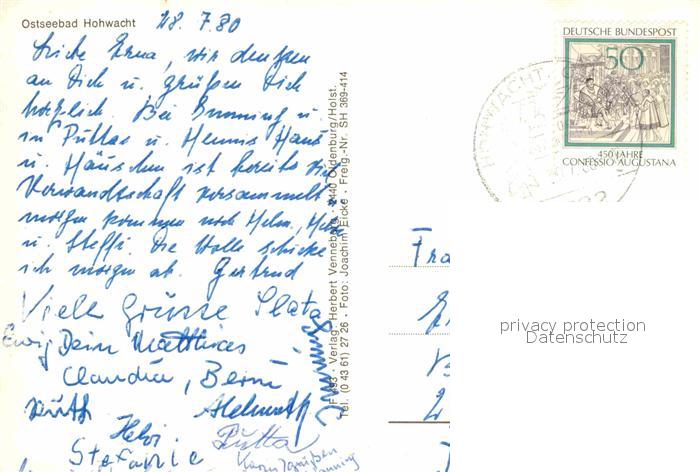 Ostseebad Hohwacht 28.7.80
Liebe Erna, wir denken
an Dich u. grüßen Dich
herzlich. Bei u.
in Püttas u. Hennis Haus
u. Häuschen ist bereits
Verwandtschaft versammelt
morgen kommen noch Helm,
u. Steffi. Die Wolle schicke
ich morgen ab. Gertrud
Viele Grüsse
Ewig Dein Matthias
Claudia, Berni
Ruth Helmuth
Hebi Pütta
Stefanie
F 493 · Verlag: Herbert Venneberg · 2440 Oldenburg/Holst.
Tel. (0 43 61) 27 26 · Foto: Joachim Eicke · Freig.-Nr. SH 369-414
DEUTSCHE BUNDESPOST
50
450 JAHRE
CONFESSIO AUGUSTANA
HOHWACHT
Fra
privacy protection
Datenschutz